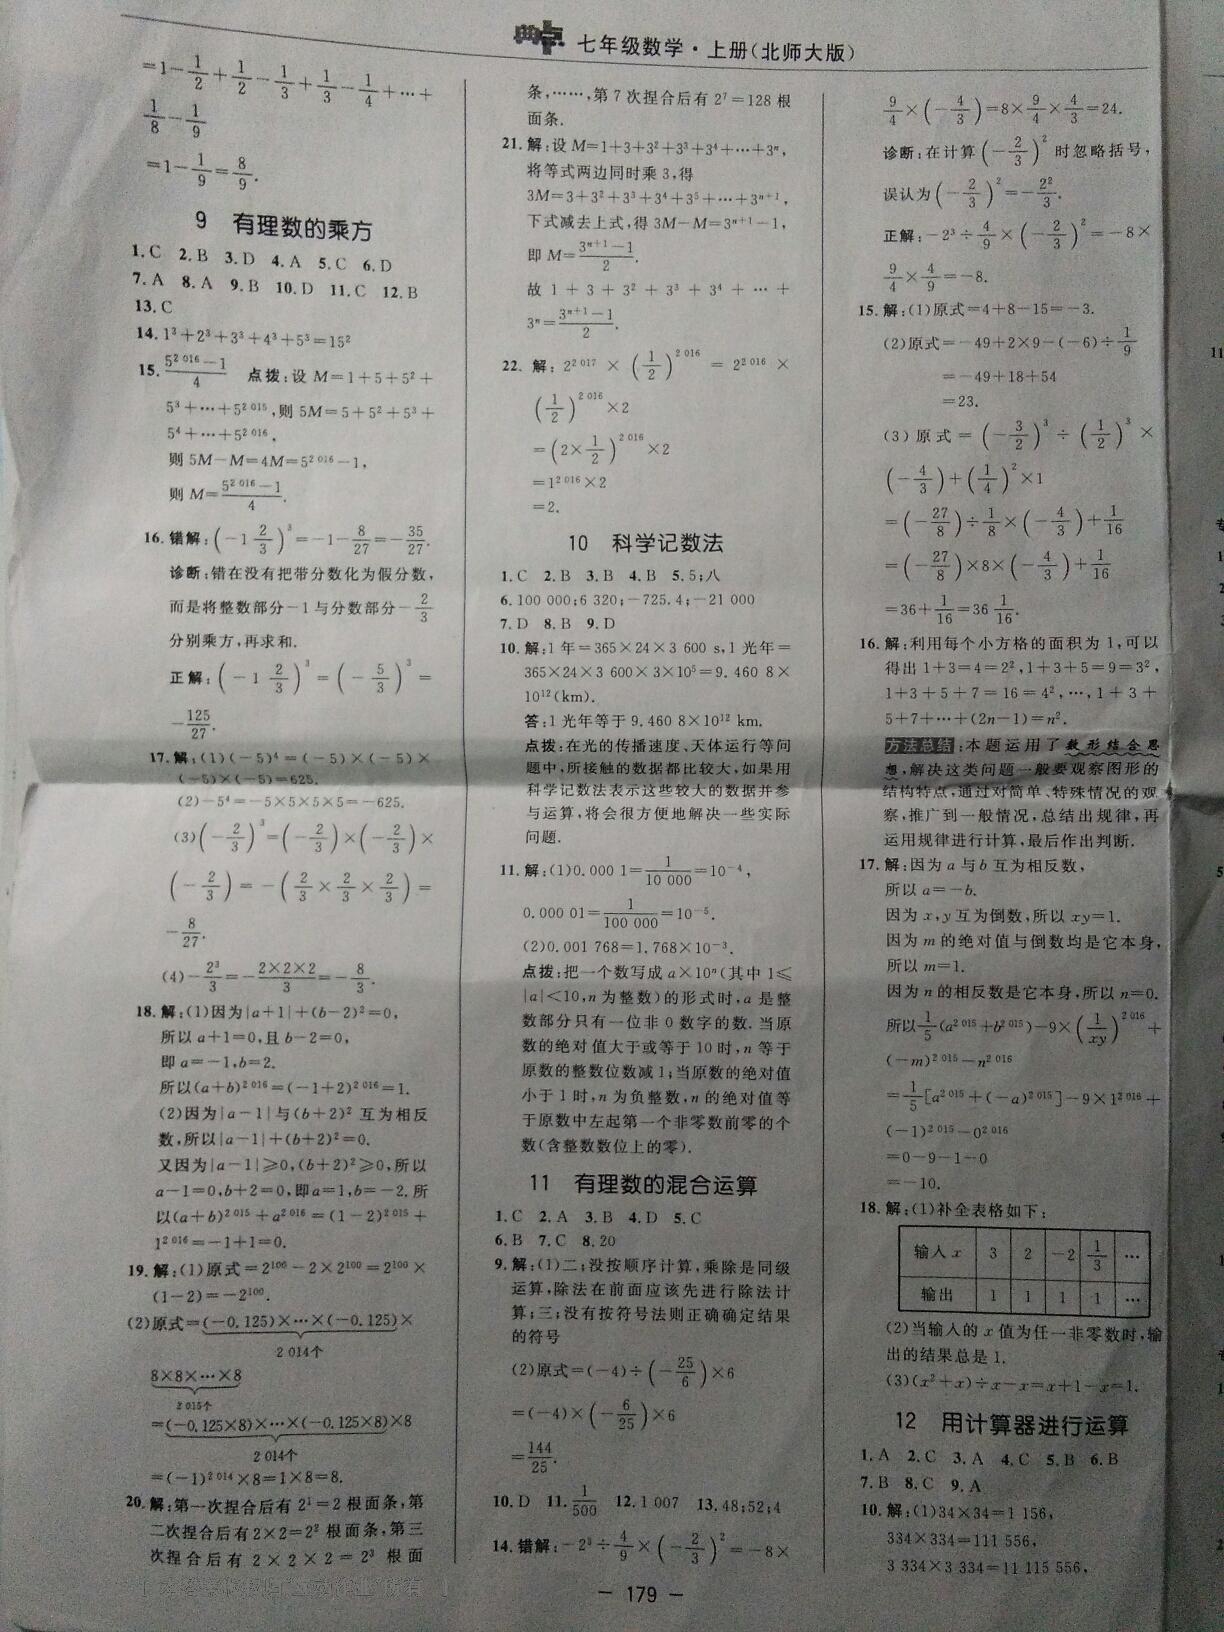 典点 七年级数学·上册(北师大版)
=1-1/2+1/2-1/3+1/3-1/4+…+
1/8-1/9
=1-1/9=8/9.
9 有理数的乘方
1.C 2.B 3.D 4.A 5.C 6.D
7.A 8.A 9.B 10.D 11.C 12.B
13.C
14.1³+2³+3³+4³+5³=15²
15.(5^2 016-1)/4 点拨:设 M=1+5+5²+
5³+…+5^2 015,则 5M=5+5²+5³+
5⁴+…+5^2 016,
则 5M-M=4M=5^2 016-1,
则 M=(5^2 016-1)/4.
16.错解:(-1 2/3)³=-1-8/27=-35/27.
诊断:错在没有把带分数化为假分数,
而是将整数部分-1与分数部分-2/3
分别乘方,再求和.
正解:(-1 2/3)³=(-5/3)³=
-125/27.
17.解:(1)(-5)⁴=(-5)×(-5)×
(-5)×(-5)=625.
(2)-5⁴=-5×5×5×5=-625.
(3)(-2/3)³=(-2/3)×(-2/3)×
(-2/3)=-(2/3×2/3×2/3)=
-8/27.
(4)-2³/3=-(2×2×2)/3=-8/3.
18.解:(1)因为|a+1|+(b-2)²=0,
所以 a+1=0,且 b-2=0,
即 a=-1,b=2.
所以(a+b)^2 016=(-1+2)^2 016=1.
(2)因为|a-1|与(b+2)²互为相反
数,所以|a-1|+(b+2)²=0.
又因为|a-1|≥0,(b+2)²≥0,所以
a-1=0,b+2=0,即a=1,b=-2.所
以(a+b)^2 015+a^2 016=(1-2)^2 015+
1^2 016=-1+1=0.
19.解:(1)原式=2^100-2×2^100=2^100×
(1-2)=-2^100.
(2)原式=(-0.125)×…×(-0.125)×
2 014个
8×8×…×8
2 015个
=(-0.125×8)×…×(-0.125×8)×8
2 014个
=(-1)^2 014×8=1×8=8.
20.解:第一次捏合后有2¹=2根面条,第
二次捏合后有2×2=2²根面条,第三
次捏合后有 2×2×2=2³ 根面
条,……,第7次捏合后有2⁷=128根
面条.
21.解:设 M=1+3+3²+3³+3⁴+…+3ⁿ,
将等式两边同时乘3,得
3M=3+3²+3³+3⁴+3⁵+…+3ⁿ⁺¹,
下式减去上式,得 3M-M=3ⁿ⁺¹-1,
即 M=(3ⁿ⁺¹-1)/2.
故 1+3+3²+3³+3⁴+…+
3ⁿ=(3ⁿ⁺¹-1)/2.
22.解:2^2 017×(1/2)^2 016=2^2 016×
(1/2)^2 016×2
=(2×1/2)^2 016×2
=1^2 016×2
=2.
10 科学记数法
1.C 2.B 3.B 4.B 5.5;八
6.100 000;6 320;-725.4;-21 000
7.D 8.B 9.D
10.解:1年=365×24×3 600 s,1光年=
365×24×3 600×3×10⁵=9.460 8×
10¹²(km).
答:1光年等于9.460 8×10¹² km.
点拨:在光的传播速度、天体运行等问
题中,所接触的数据都比较大,如果用
科学记数法表示这些较大的数据并参
与运算,将会很方便地解决一些实际
问题.
11.解:(1)0.000 1=1/10 000=10⁻⁴,
0.000 01=1/100 000=10⁻⁵.
(2)0.001 768=1.768×10⁻³.
点拨:把一个数写成a×10ⁿ(其中1≤
|a|<10,n为整数)的形式时,a是整
数部分只有一位非0数字的数.当原
数的绝对值大于或等于10时,n等于
原数的整数位数减1;当原数的绝对值
小于1时,n为负整数,n的绝对值等
于原数中左起第一个非零数前零的个
数(含整数数位上的零).
11 有理数的混合运算
1.C 2.A 3.B 4.D 5.C
6.B 7.C 8.20
9.解:(1)二;没按顺序计算,乘除是同级
运算,除法在前面应该先进行除法计
算;三;没有按符号法则正确确定结果
的符号
(2)原式=(-4)÷(-25/6)×6
=(-4)×(-6/25)×6
=144/25.
10.D 11.1/500 12.1 007 13.48;52;4
14.错解:-2³÷4/9×(-2/3)²=-8×
9/4×(-4/3)=8×9/4×4/3=24.
诊断:在计算(-2/3)²时忽略括号,
误认为(-2/3)²=-2²/3.
正解:-2³÷4/9×(-2/3)²=-8×
9/4×4/9=-8.
15.解:(1)原式=4+8-15=-3.
(2)原式=-49+2×9-(-6)÷1/9
=-49+18+54
=23.
(3)原式=(-3/2)³÷(1/2)³×
(-4/3)+(1/4)²×1
=(-27/8)÷1/8×(-4/3)+1/16
=(-27/8)×8×(-4/3)+1/16
=36+1/16=36 1/16.
16.解:利用每个小方格的面积为1,可以
得出1+3=4=2²,1+3+5=9=3²,
1+3+5+7=16=4²,…,1+3+
5+7+…+(2n-1)=n².
方法总结:本题运用了数形结合思
想,解决这类问题一般要观察图形的
结构特点,通过对简单、特殊情况的观
察,推广到一般情况,总结出规律,再
运用规律进行计算,最后作出判断.
17.解:因为a与b互为相反数,
所以a=-b.
因为x,y互为倒数,所以xy=1.
因为m的绝对值与倒数均是它本身,
所以m=1.
因为n的相反数是它本身,所以n=0.
所以1/5(a^2 015+b^2 015)-9×(1/xy)^2 016+
(-m)^2 015-n^2 016
=1/5[a^2 015+(-a)^2 015]-9×1^2 016+
(-1)^2 015-0^2 016
=0-9-1-0
=-10.
18.解:(1)补全表格如下:
输入x 3 2 -2 1/3 …
输出 1 1 1 1 …
(2)当输入的x值为任一非零数时,输
出的结果总是1.
(3)(x²+x)÷x-x=x+1-x=1.
12 用计算器进行运算
1.A 2.C 3.A 4.C 5.B 6.B
7.B 8.C 9.A
10.解:(1)34×34=1 156,
334×334=111 556,
3 334×3 334=11 115 556,
- 179 -